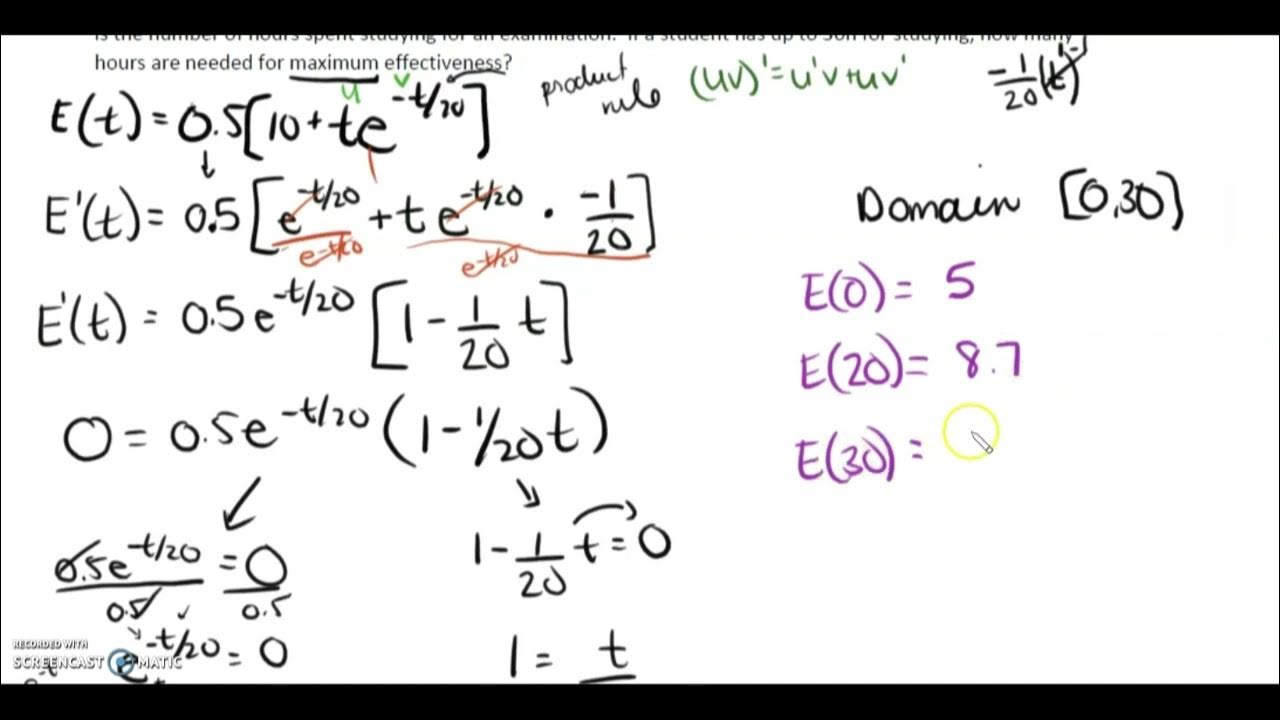 is the number of hours spent studying for an examination. If a student has up to 30h for studying, how many
hours are needed for maximum effectiveness?
u v
E(t) = 0.5[10 + te^-t/20]
product rule (uv)' = u'v + uv'
-1/20 (t)
E'(t) = 0.5[e^-t/20 + te^-t/20 · -1/20]
e^-t/20 e^-t/20
Domain [0,30]
E'(t) = 0.5e^-t/20 [1 - 1/20 t]
E(0) = 5
E(20) = 8.7
E(30) =
0 = 0.5e^-t/20 (1 - 1/20t)
0.5e^-t/20 = 0
0.5 0.5
e^-t/20 = 0
1 - 1/20 t = 0
1 = t
RECORDED WITH
SCREENCAST MATIC